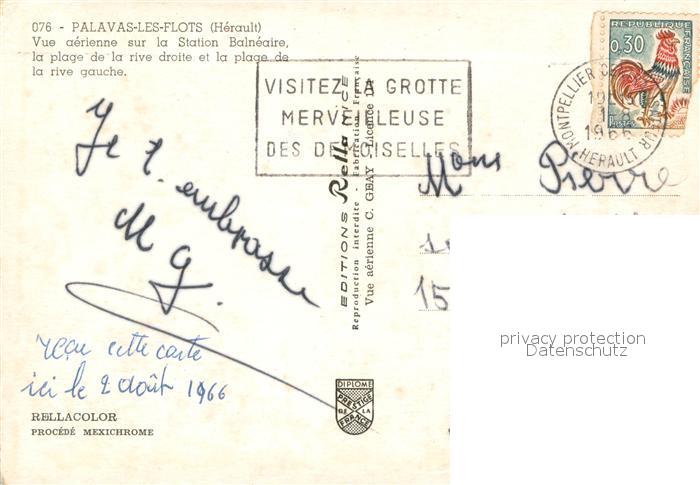 076 - PALAVAS-LES-FLOTS (Hérault)
Vue aérienne sur la Station Balnéaire,
la plage de la rive droite et la plage de
la rive gauche.
VISITEZ LA GROTTE
MERVEILLEUSE
DES DEMOISELLES
REPUBLIQUE FRANÇAISE
0,30
POSTES
MONTPELLIER
1966
HERAULT
Je t. embrasse
M G.
Mons Pierre
15
EDITIONS Rella NICE
Reproduction interdite - Fabrication Française
Vue aérienne C. GEAY Licence
reçu cette carte
ici le 2 août 1966
RELLACOLOR
PROCÉDÉ MEXICHROME
DIPLOME
PRESTIGE
DE LA
FRANCE
privacy protection
Datenschutz